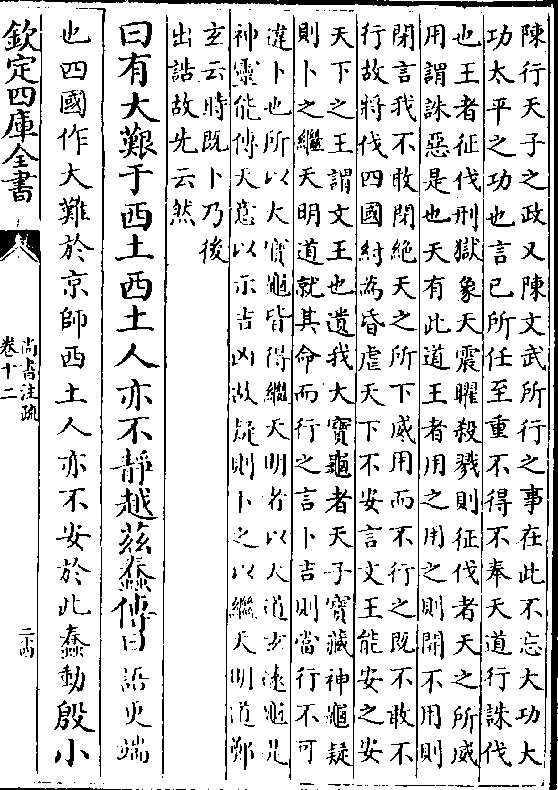 陳行天子之政又陳文武所行之事在此不忘大功大
功太平之功也言已所任至重不得不奉天道行誅伐
也王者征伐刑獄象天震曜殺戮則征伐者天之所威
用謂誅惡是也天有此道王者用之用之則開不用則
閉言我不敢閉絶天之所下威用而不行之既不敢不
行故將伐四國紂為昏虐天下不安言文王能安之安
天下之王謂文王也遺我大寶龜者天子寶藏神龜疑
則卜之繼天明道就其命而行之言卜吉則當行不可
違卜也所以大寶龜皆得繼天明者以天道玄遠龜是
神靈能傳天意以示吉凶故疑則卜之以繼天明道鄭
玄云時既卜乃後
出誥故先云然
曰有大艱于西土西土人亦不靜越茲蠢傳曰語更端
也四國作大難於京師西土人亦不安於此蠢動殷小
欽定四庫全書
尚書注疏
卷十二
二十四